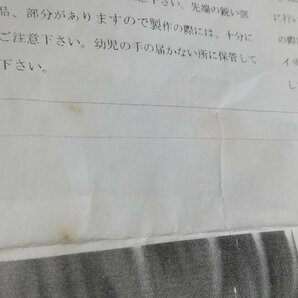 下さい。先端の鋭い部
品、部分がありますので製作の際には、十分に
ご注意下さい。幼児の手の届かない所に保管して
下さい。
に行い
の際
イサ
し